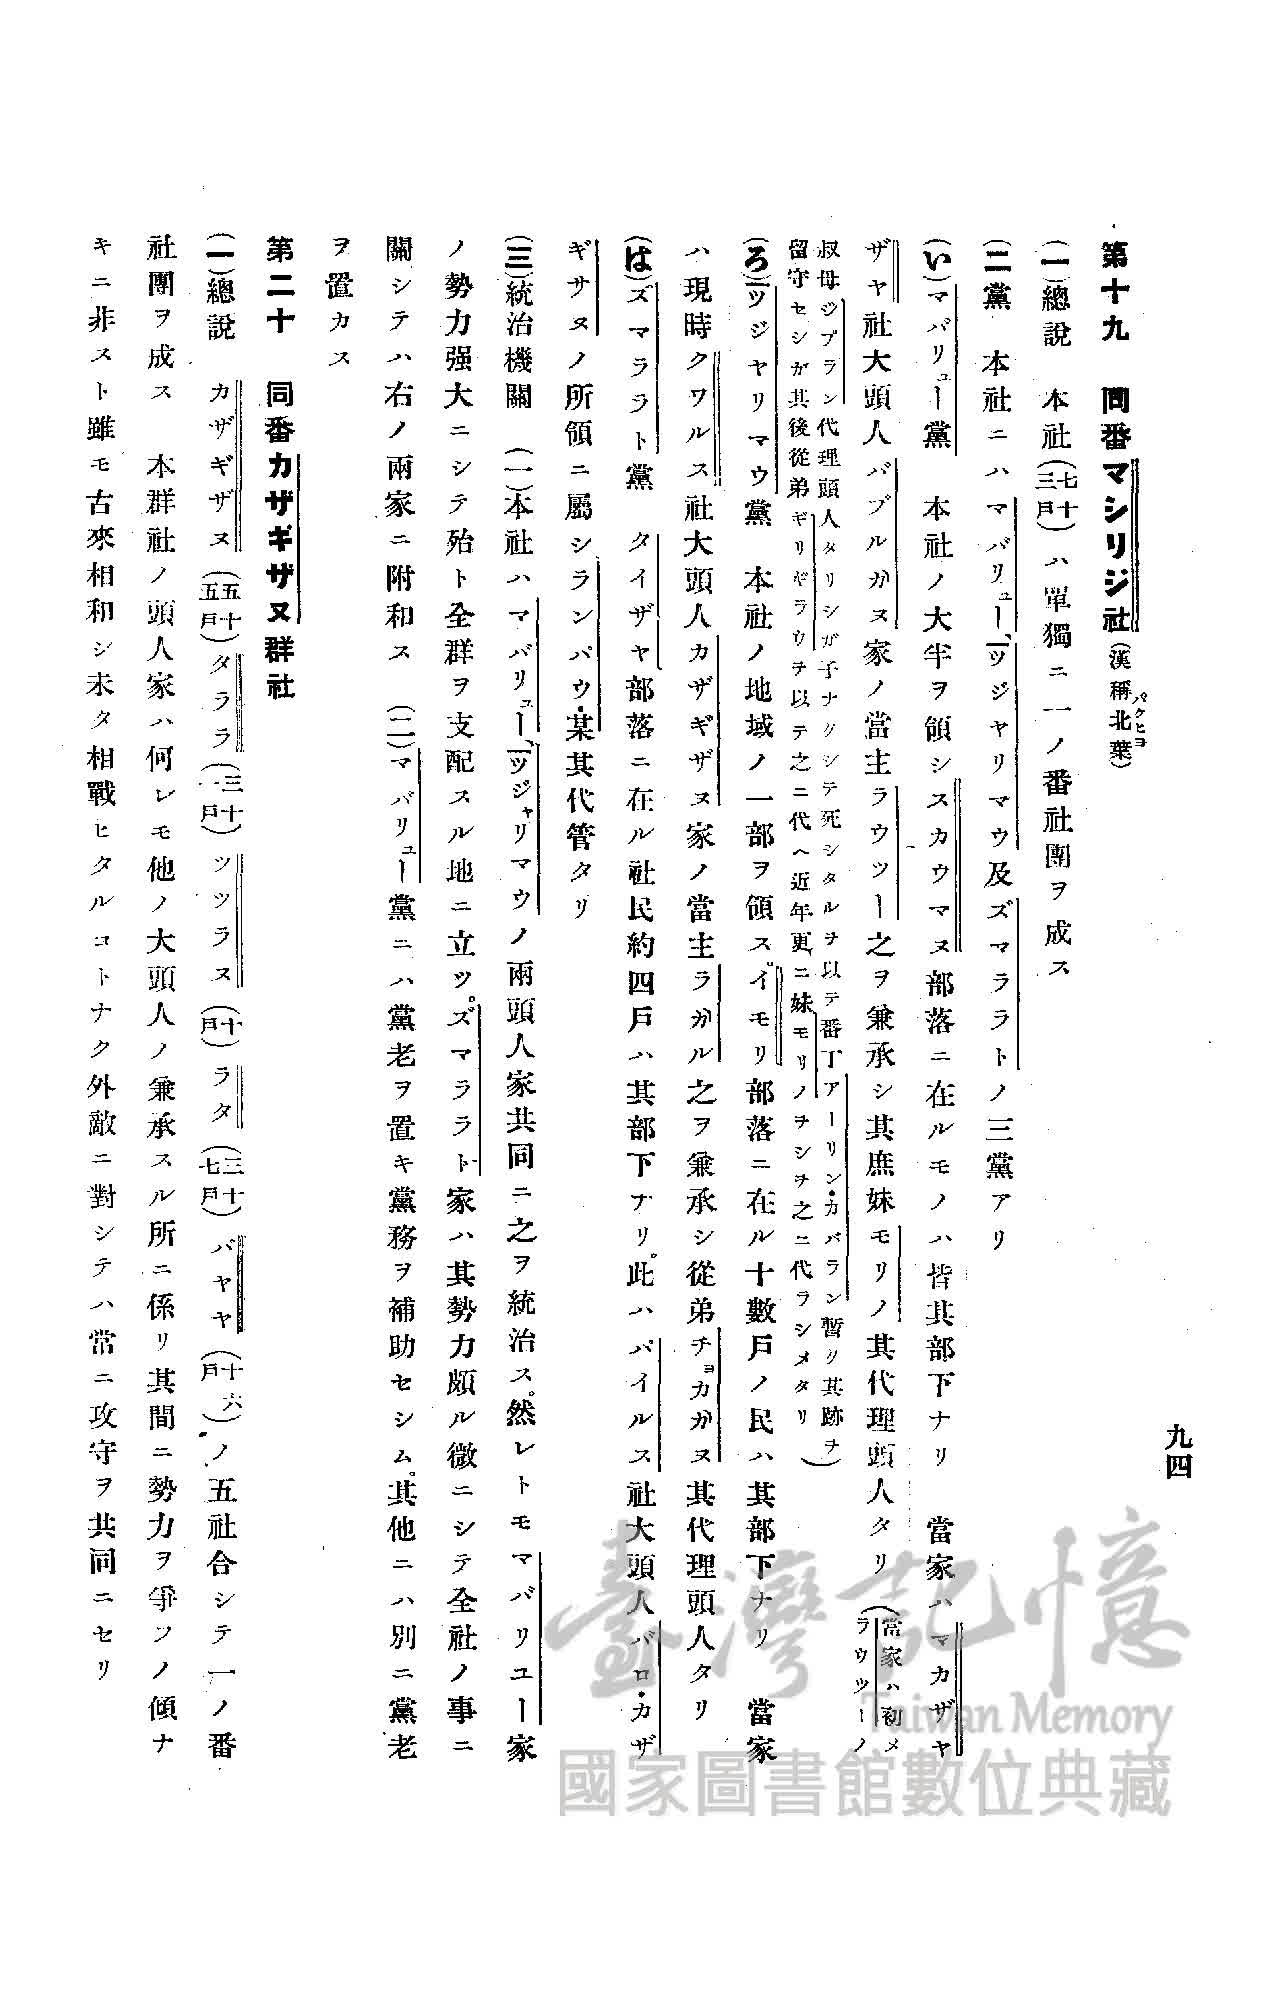 九四
第十九　同番マシリジ社(漢稱北葉パクヒヨ)
(一)總說　本社(七十三戶)ハ單獨ニ一ノ番社團ヲ成ス
(二)黨　本社ニハマバリュー、ツジヤリマウ及ズマララトノ三黨アリ
(い)マバリュー黨　本社ノ大半ヲ領シスカウマヌ部落ニ在ルモノハ皆其部下ナリ　當家ハマカザヤ
ザヤ社大頭人バブルガヌ家ノ當主ラウツー之ヲ兼承シ其庶妹モリノ其代理頭人タリ(當家ハ初メラウツーノ
叔母ジプラン代理頭人タリシガ子ナクシテ死シタルヲ以テ番丁アーリン・カバラン暫ク其跡ヲ
留守セシガ其後從弟ギリギラウヲ以テ之ニ代ヘ近年更ニ妹モリノヲシヲ之ニ代ラシメタリ)
(ろ)ツジヤリマウ黨　本社ノ地域ノ一部ヲ領ス。イモリ部落ニ在ル十數戶ノ民ハ其部下ナリ　當家
ハ現時クワルス社大頭人カザギザヌ家ノ當主ラガル之ヲ兼承シ從弟チョカガヌ其代理頭人タリ
(は)ズマララト黨　タイザヤ部落ニ在ル社民約四戶ハ其部下ナリ。此ハパイルス社大頭人バロ・カザ
ギサヌノ所領ニ屬シランパウ・某其代管タリ
(三)統治機關　(一)本社ハマバリュー、ツジャリマウノ兩頭人家共同ニ之ヲ統治ス。然レトモマバリユー家
ノ勢力强大ニシテ殆ト全群ヲ支配スル地ニ立ツ。ズマララト家ハ其勢力頗ル微ニシテ全社ノ事ニ
關シテハ右ノ兩家ニ附和ス　(二)マバリュー黨ニハ黨老ヲ置キ黨務ヲ補助セシム。其他ニハ別ニ黨老
ヲ置カス
第二十　同番カザギザヌ群社
(一)總說　カザギザヌ(五十五戶)タララ(三十一戶)ツツラヌ(十戶)ラタ(三十七戶)バヤヤ(十六戶)ノ五社合シテ一ノ番
社團ヲ成ス　本群社ノ頭人家ハ何レモ他ノ大頭人ノ兼承スル所ニ係リ其間ニ勢力ヲ爭フノ傾ナ
キニ非スト雖モ古來相和シ未タ相戰ヒタルコトナク外敵ニ對シテハ常ニ攻守ヲ共同ニセリ
臺灣記憶
Taiwan Memory
國家圖書館數位典藏